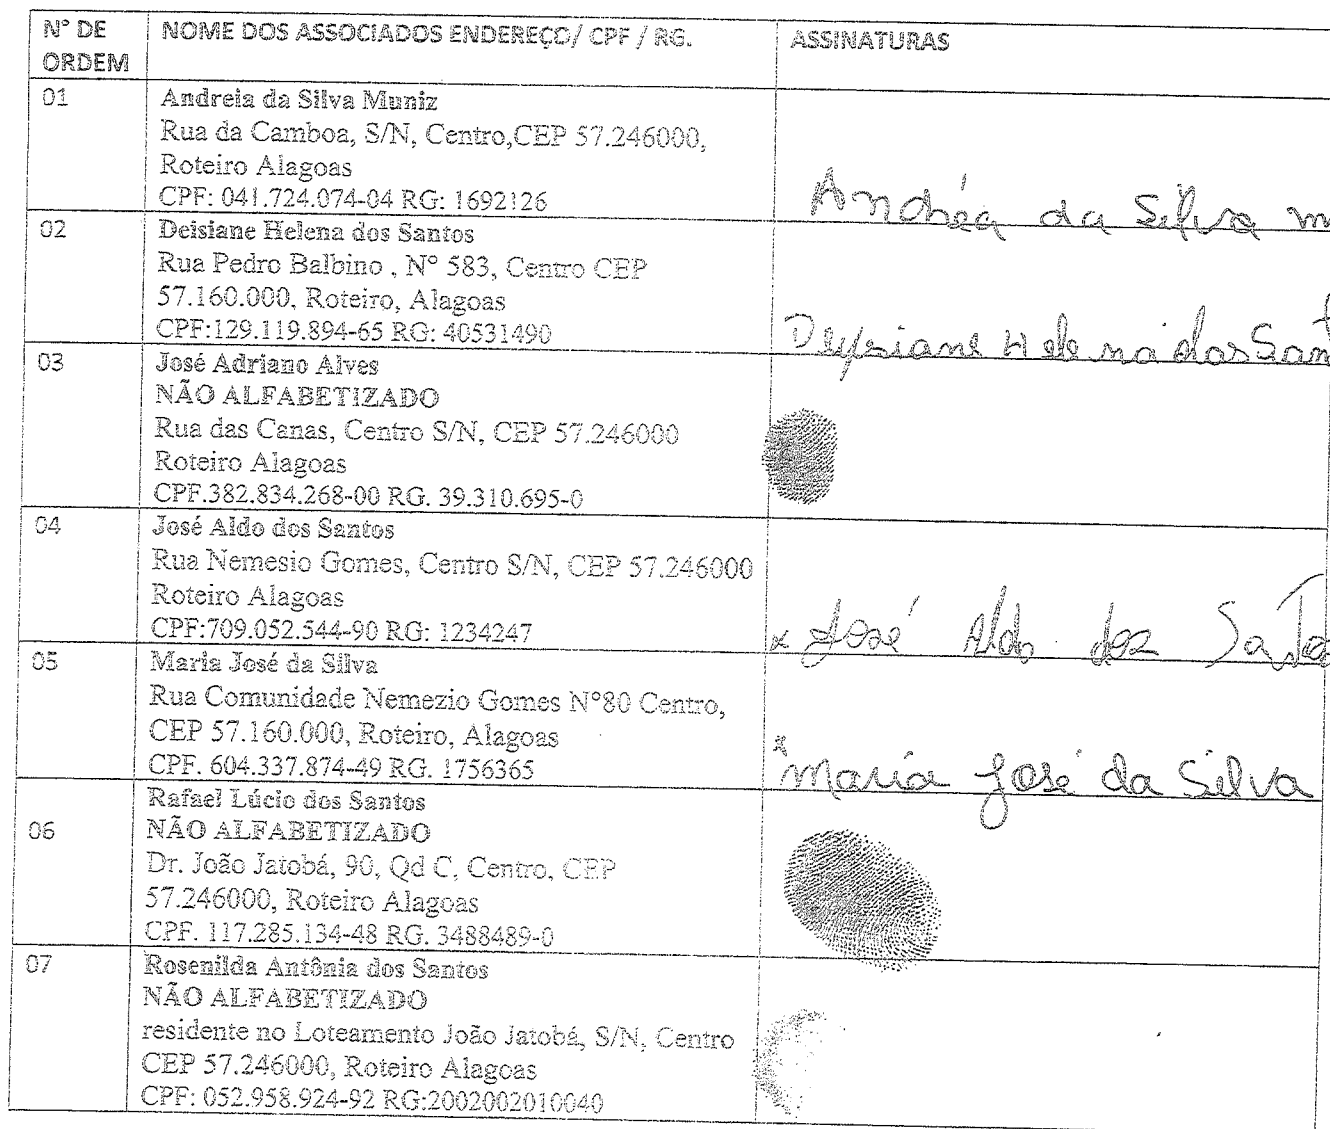 N° DE ORDEM
NOME DOS ASSOCIADOS ENDEREÇO/ CPF / RG.
ASSINATURAS
01
Andreia da Silva Muniz
Rua da Camboa, S/N, Centro,CEP 57.246000,
Roteiro Alagoas
CPF: 041.724.074-04 RG: 1692126
Andréa da Silva m
02
Deisiane Helena dos Santos
Rua Pedro Balbino , N° 583, Centro CEP
57.160.000, Roteiro, Alagoas
CPF:129.119.894-65 RG: 40531490
Deysiane Helena dos Sant
03
José Adriano Alves
NÃO ALFABETIZADO
Rua das Canas, Centro S/N, CEP 57.246000
Roteiro Alagoas
CPF.382.834.268-00 RG. 39.310.695-0
04
José Aldo dos Santos
Rua Nemesio Gomes, Centro S/N, CEP 57.246000
Roteiro Alagoas
CPF:709.052.544-90 RG: 1234247
x José Aldo dos Sato
05
Maria José da Silva
Rua Comunidade Nemezio Gomes N°80 Centro,
CEP 57.160.000, Roteiro, Alagoas
CPF. 604.337.874-49 RG. 1756365
x Maria José da Silva
06
Rafael Lúcio dos Santos
NÃO ALFABETIZADO
Dr. João Jatobá, 90, Qd C, Centro, CEP
57.246000, Roteiro Alagoas
CPF. 117.285.134-48 RG. 3488489-0
07
Rosenilda Antônia dos Santos
NÃO ALFABETIZADO
residente no Loteamento João Jatobá, S/N, Centro
CEP 57.246000, Roteiro Alagoas
CPF: 052.958.924-92 RG:2002002010040